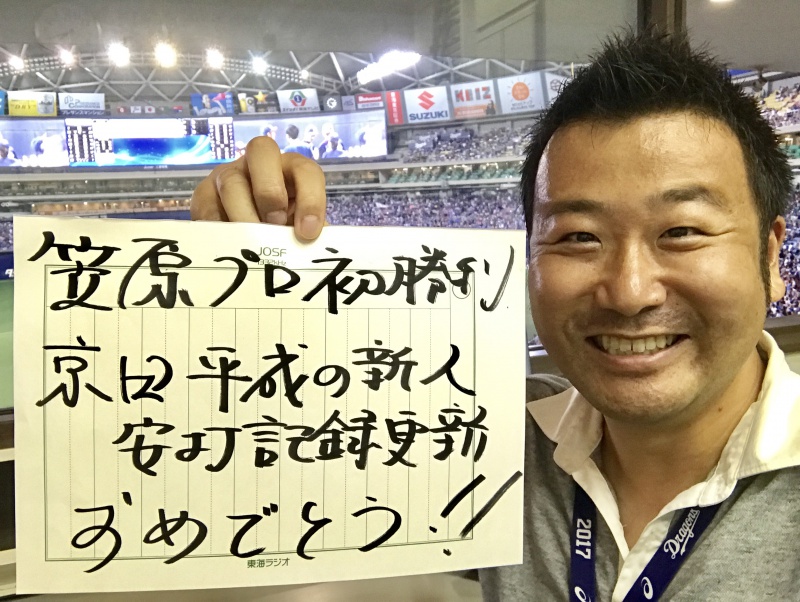 SUZUKI
KEIZ
JOSF
1332kHz
笠原プロ初勝利
京田平成の新人
安打記録更新
おめでとう!!
東海ラジオ
2017
Dragons